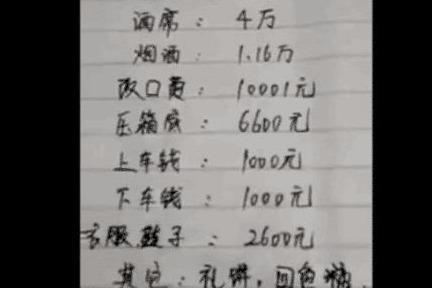 酒席: 4万
烟酒: 1.16万
改口费: 10001元
压箱底: 6600元
上车钱: 1000元
下车钱: 1000元
衣服鞋子: 2600元
其它: 礼饼,回鱼